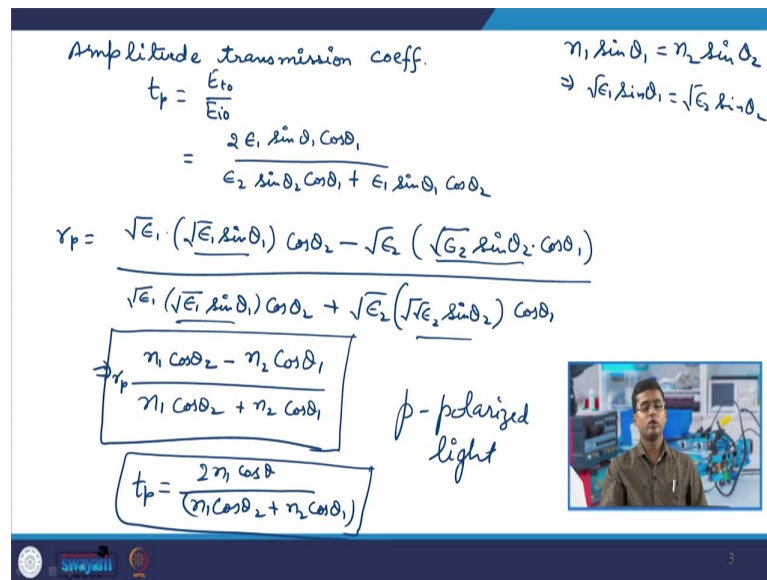 Amplitude transmission coeff.
n₁ sinθ₁ = n₂ sinθ₂
⇒ √ϵ₁ sinθ₁ = √ϵ₂ sinθ₂
tp = Et0 / Ei0
= 2 ϵ₁ sinθ₁ cosθ₁ / ϵ₂ sinθ₂ cosθ₁ + ϵ₁ sinθ₁ cosθ₂
rp = √ϵ₁ · (√ϵ₁ sinθ₁) cosθ₂ − √ϵ₂ (√ϵ₂ sinθ₂ · cosθ₁) / √ϵ₁ (√ϵ₁ sinθ₁) cosθ₂ + √ϵ₂ (√√ϵ₂ sinθ₂) cosθ₁
⇒ rp n₁ cosθ₂ − n₂ cosθ₁ / n₁ cosθ₂ + n₂ cosθ₁
p-polarized
light
tp = 2n₁ cosθ / (n₁ cosθ₂ + n₂ cosθ₁)
swayam
3